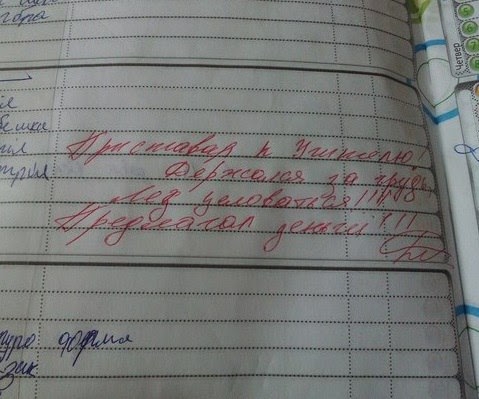 гора
Четверг
Приставал к Учителю!
Держался за грудь
Лез целоваться!!!!
Предлагал деньги!!!
форма